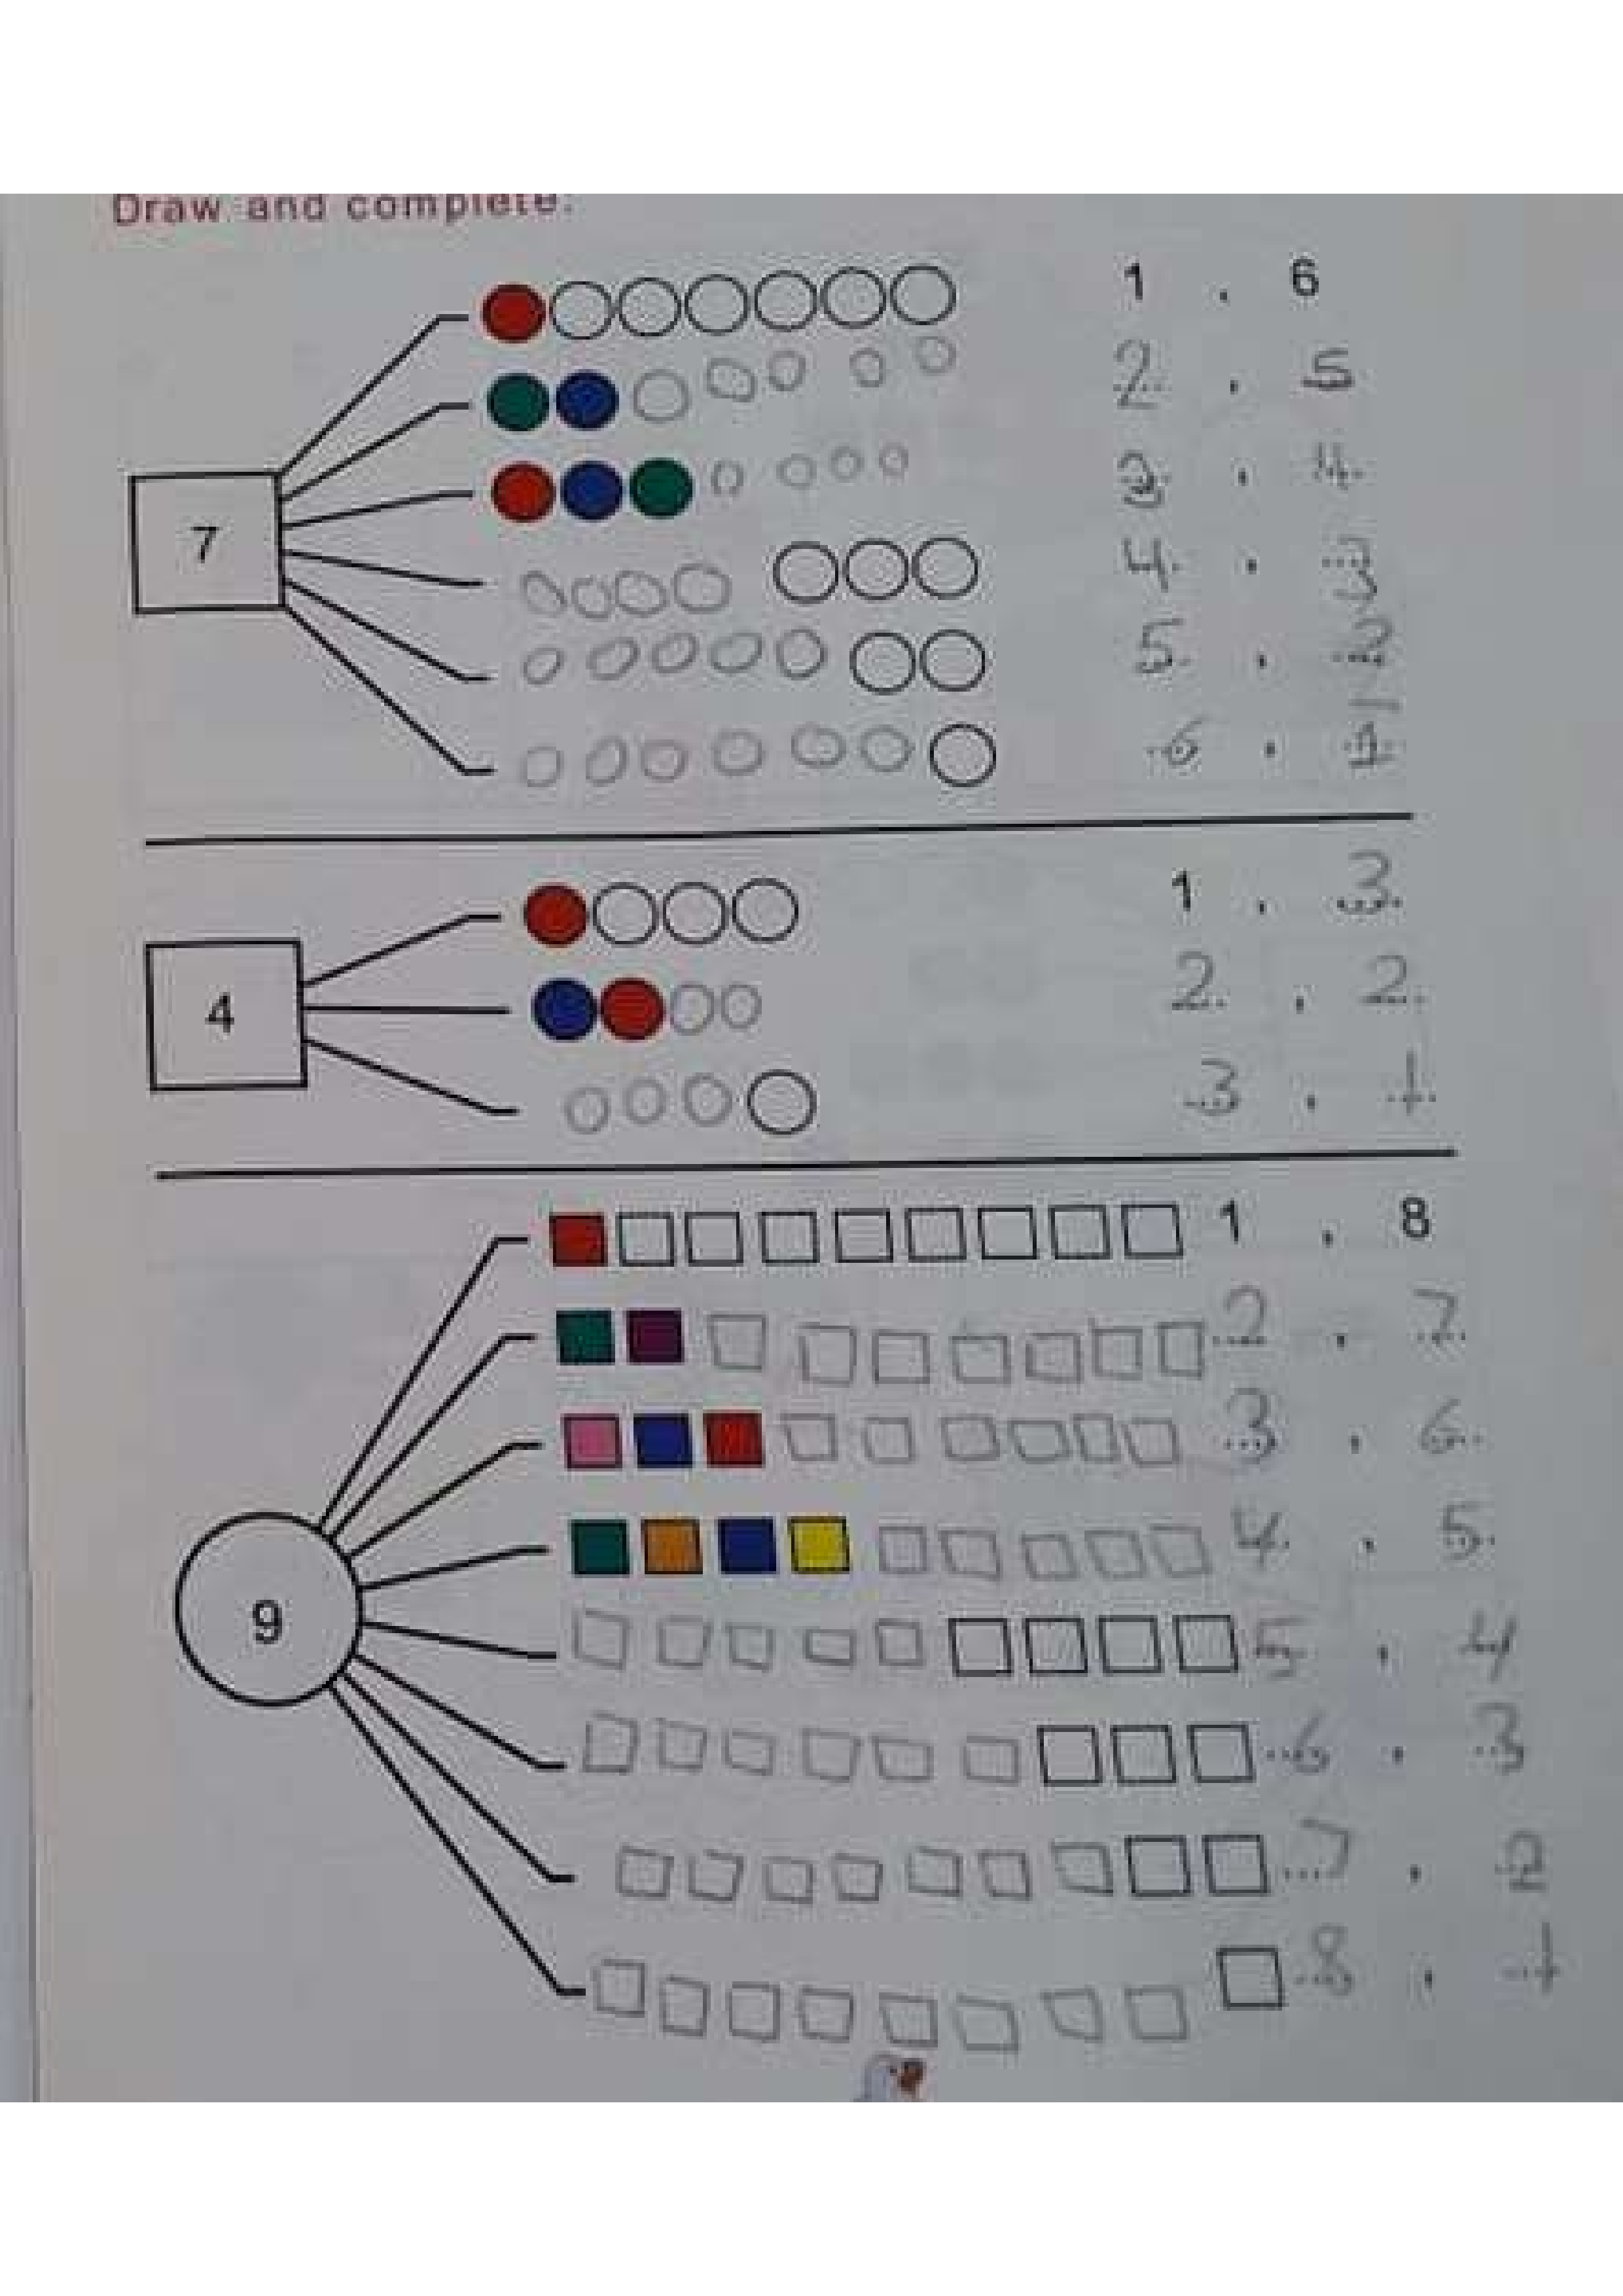 Draw and complete:
1 , 6
2 , 5
3 , 4
7
4 , 3
5 , 2
6 , 1
1 , 3
4
2 , 2
3 , 1
1 , 8
2 , 7
3 , 6
4 , 5
9
5 , 4
6 , 3
7 , 2
8 , 1